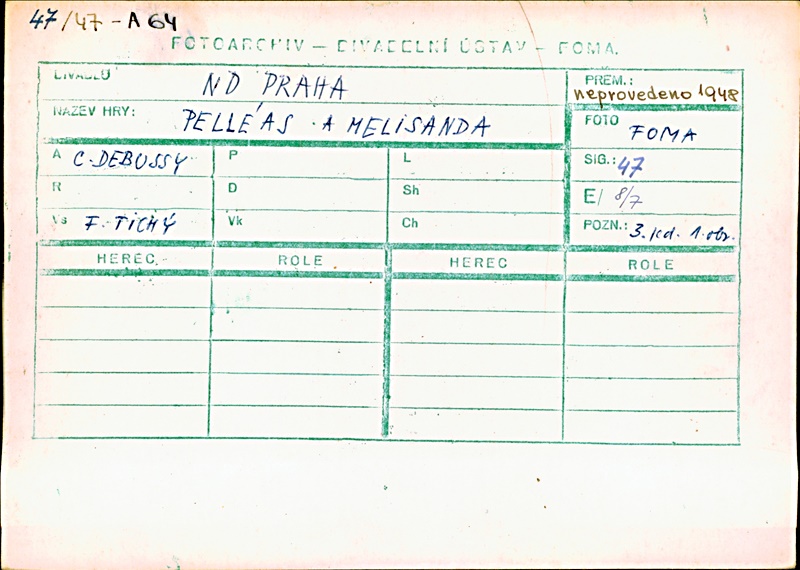 47/47 - A 64
FOTOARCHIV – DIVADELNÍ ÚSTAV – FOMA.
DIVADLO ND PRAHA
PREM.: neprovedeno 1948
NÁZEV HRY: PELLÉAS A MELISANDA
FOTO FOMA
A C. DEBUSSY P L
SIG.: 47
R D Sh
E/ 8/7
Vs F. TICHÝ Vk Ch
POZN.: 3. jed. 1. obr.
HEREC ROLE HEREC ROLE